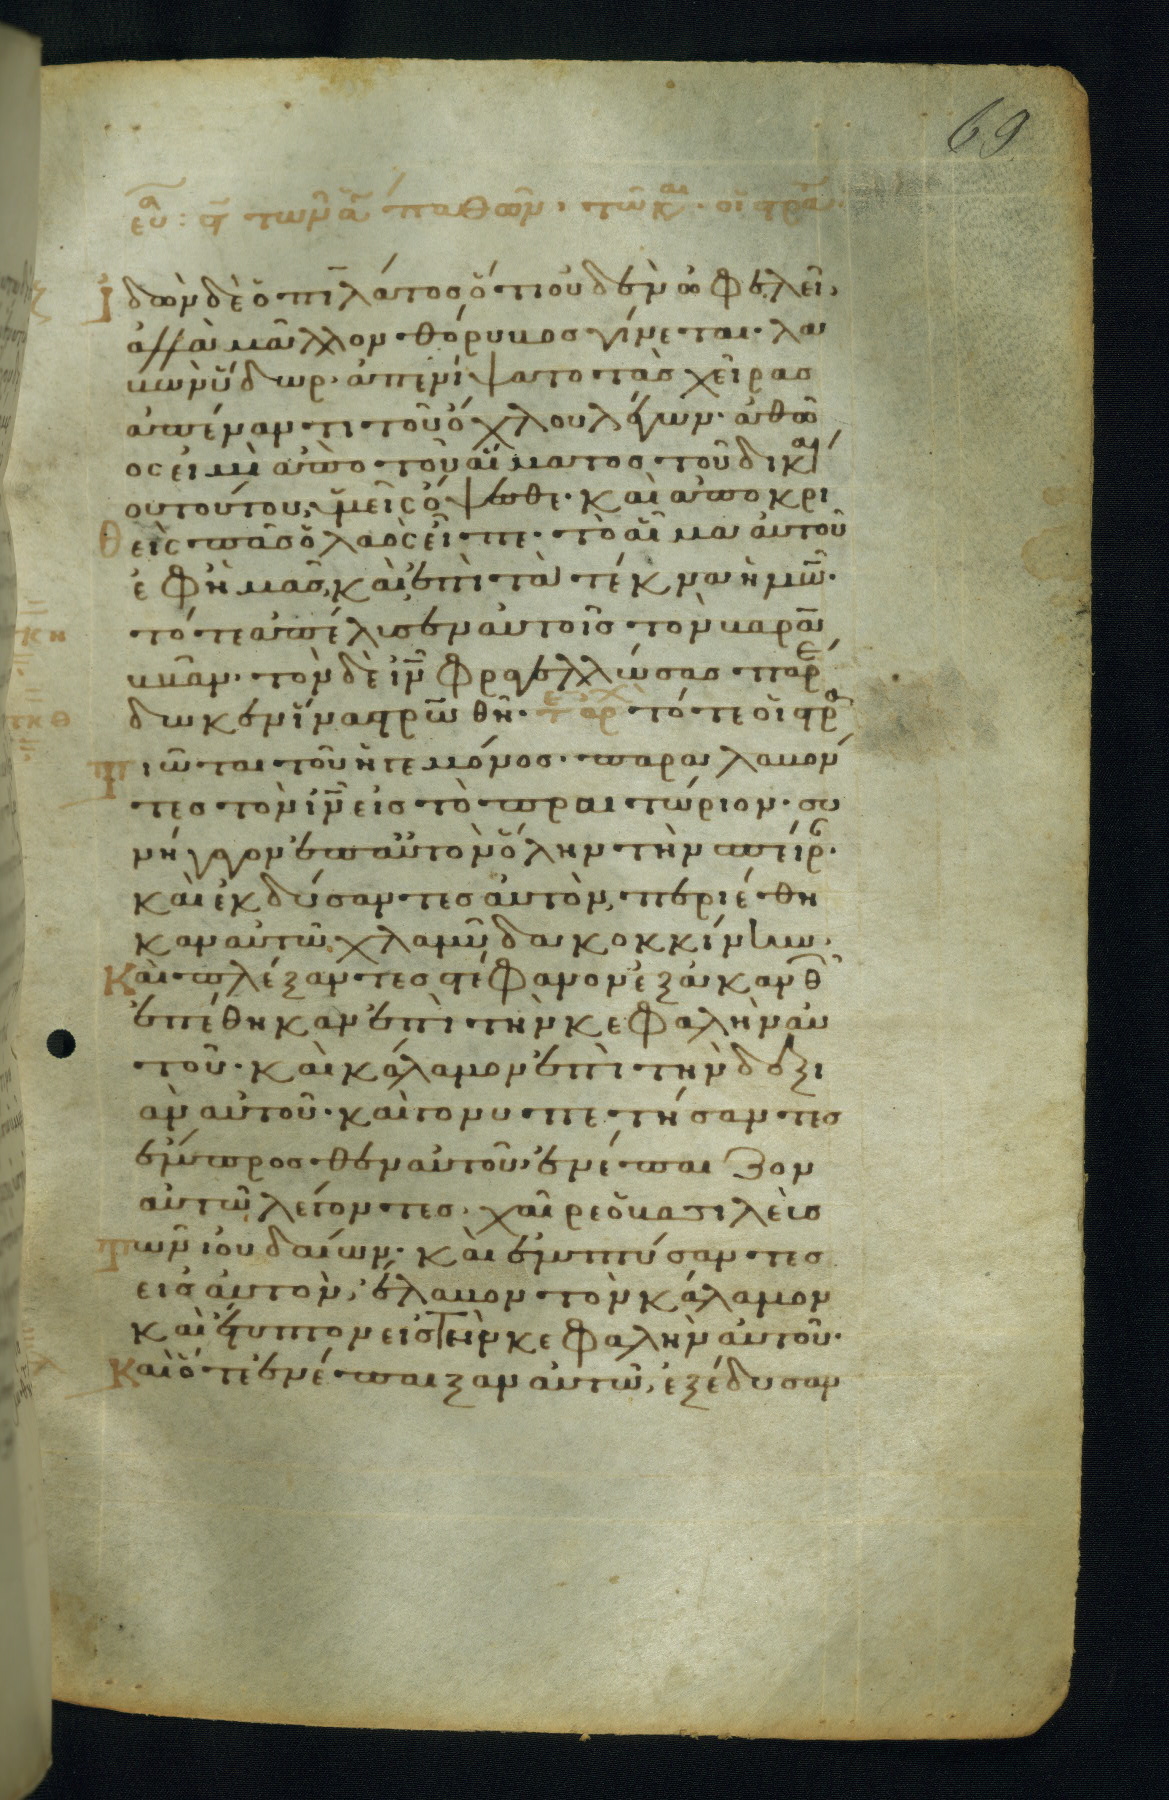 69
ευα: ϛ̄ τῶν ἁ παθῶν· τῶ και· οἱ στρα·
Ἰδων δὲ ὁ πιλάτος ὅτι οὐδὲν ὠφελεῖ,
ἀλλὰ μᾶλλον θόρυβος γίνεται· λα
βὼν ὕδωρ· ἀπενίψατο τὰς χεῖρας
ἀπέναντι τοῦ ὄχλου λέγων· ἀθῶ
ος εἰμὶ ἀπὸ τοῦ αἵματος τοῦ δικαί
ου τούτου, ὑμεῖς ὄψωθε· καὶ ἀποκρι
θεὶς πᾶς ὁ λαὸς εἶπε· τὸ αἷμα αὐτοῦ
ἐφ ἡμᾶς, καὶ ἐπὶ τὰ τέκνα ἡμῶ·
τότε ἀπέλυσεν αὐτοῖς τὸν βαρα
κη
ββᾶν· τὸν δὲ ἰν̄ φραγελλώσας παρέ
δωκεν ἵνα στρωθῆ· τε αρχ τότε οἱ στρα
τκθ
τιῶται τοῦ ἡγεμόνος· παραλαβόν
τες τὸν ἰν̄ εἰς τὸ πραιτώριον· συ
νήγαγον ἐπ αὐτὸν ὅλην τὴν σπείρ·
καὶ ἐκδύσαντες αὐτὸν, περιέθη
καν αὐτῶ χλαμῦδα κοκκίνην·
Καὶ πλέξαντες στέφανον ἐξ ἀκανθ
ἐπέθηκαν ἐπὶ τὴν κεφαλὴν αὐ
τοῦ· καὶ κάλαμον ἐπὶ τὴν δεξι
ὰν αὐτοῦ· καὶ γονυπετήσαντες
ἔμπροσθεν αὐτοῦ ἐνέπαιζον
αὐτῶ λέγοντες· χαῖρε ὁ βασιλεὺς
τῶν ἰουδαίων· καὶ ἐμπτύσαντες
εἰς αὐτὸν, ἔλαβον τὸν κάλαμον
καὶ ἔτυπτον εἰς τὴν κεφαλὴν αὐτοῦ·
Καὶ ὅτε ἐνέπαιξαν αὐτῶ, ἐξέδυσαν